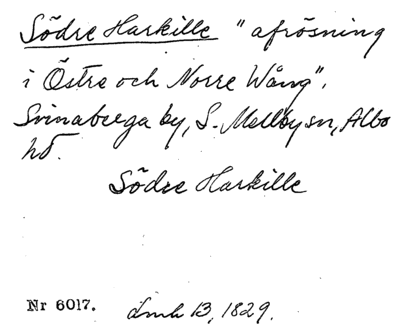 Södre Harkille "afrösning
i Östre och Norre Wång".
Svinaberga by, S. Mellby sn, Albo
hd.
Södre Harkille
Nr 6017. Lmk B, 1829.